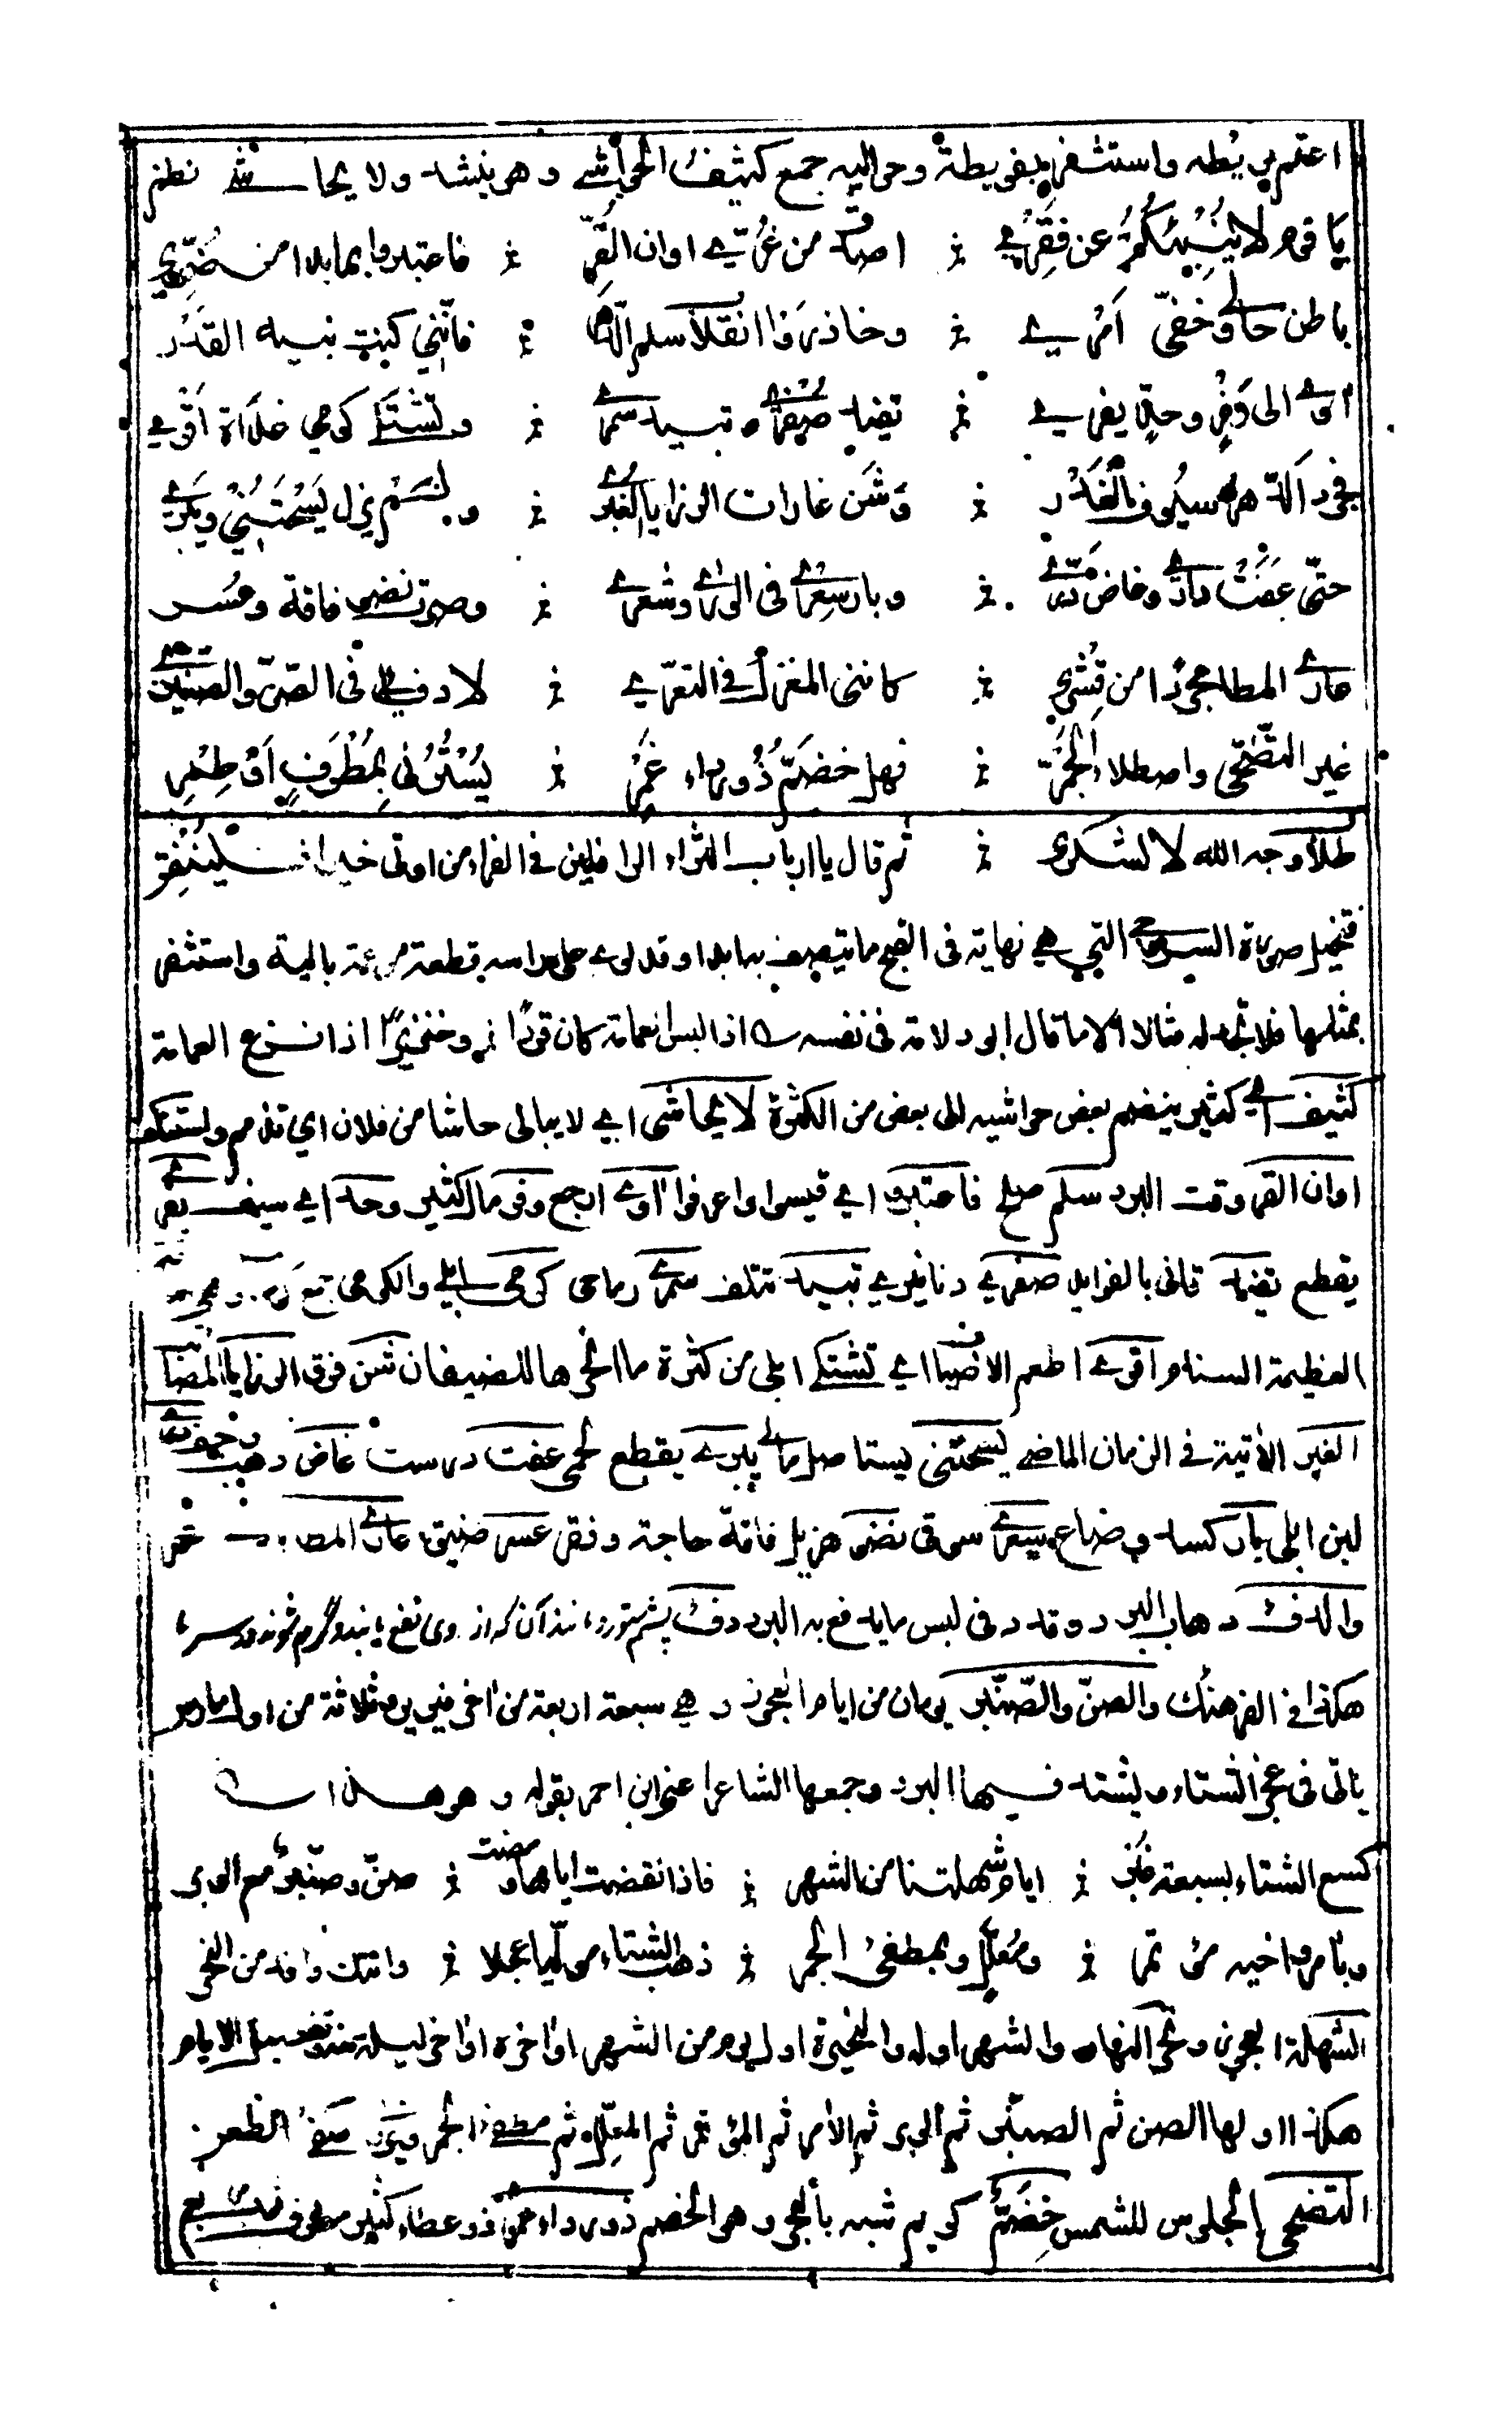 اعتم بريطه واستثفر بفويطة وحواليه جمع كثيف الحواشي وهو ينشد ولا يحاشي نظم
يا قوم لا ينبئكم عن فقري ۞ اصدق من عريي اوان القر ۞ فاعتبروا بما بدا من ضري
باطن حالي وخفي امري ۞ وحاذروا انقلاب سلم الدهر ۞ فانني كنت نبيه القدر
آوي الى وفر وحد يفري ۞ تفيد صفري وتبيد سمري ۞ وتشتكي كومي غداة اقري
فجرد الدهر سيوف الغدر ۞ وشن غارات الرزايا الغبر ۞ ولم يزل يسحتني ويبري
حتى عفت داري وغاض دري ۞ وبار سعري في الورى وشعري ۞ وصرت نضو فاقة وعسر
عاري المطا مجردا من قشري ۞ كانني المغزل في التعري ۞ لا دفء لي في الصن والصنبر
غير التضحي واصطلاء الجمر ۞ فهل خضم ذو رداء غمر ۞ يسترني بمطرف او طمر
طلاب وجه الله لا لشكري ۞ ثم قال يا ارباب الثراء الرافلين في الفراء من اوتي خيرا فلينفق
فتخيل صورة السروجي التي هي نهاية في القبح ما يتصف بها بدا وقد لوى على راسه بقطعة بالية واستثفر
بمثلها فلا تجد له مثالا الا ما قال ابو دلامة في نفسه ـه اذا لبس العمامة كان قردا ۞ وخنزيرا اذا نزع العمامة
كثيف اي كثير ينضم بعض حواشيه الى بعض من الكثرة لا يحاشي اي لا يبالي حاشا من فلان اي تذمم واستنكف
اوان القر وقت البرد سلم صلح فاعتبروا اي قيسوا واعرفوا آوي ارجع وفر مال كثير وحد اي سيف يفري
يقطع تفيد تاتي بالفوايد صفري دنانيري تبيد تتلف سمري رماحي كومي ابلي والكومي جمع
العظيمة السنام اقري اطعم الاضياف اي تشتكي ابلي من كثرة ما انحرها للضيفان شن فرق الرزايا المصائب
الغبر الآتية في الزمان الماضي يسحتني يستاصل مالي يبري يقطع لحمي عفت درست غاض ذهب
لبن ابلي بار كسد وضاع سعري سوقي نضو هزيل فاقة حاجة وفقر عسر ضيق عاري المطا ظهر
والدفء ذهاب البرد وقد دفئ لبس ما يدفع به البرد دفء پشم ستور
هكذا في الفرهنگ والصن والصنبر يومان من ايام العجوز وهي سبعة اربعة من آخر فبراير وثلاثة من اول مارس
ياتي في عجز الشتاء ويشتد فيها البرد وجمعها الشاعر اعني ابن احمر بقوله وهو هذا ـه
كسع الشتاء بسبعة غبر ۞ ايام شهلتنا من الشهر ۞ فاذا انقضت ايامها ومضت ۞ صن وصنبر مع الوبر
وبآمر واخيه مؤتمر ۞ ومعلل وبمطفئ الجمر ۞ ذهب الشتاء موليا عجلا ۞ واتتك واقدة من النجر
الشهلة العجوز ونحر النهار والشهر اوله والنحيرة اول يوم من الشهر او آخره او آخر ليلة منه وتفصيل الايام
هكذا اولها الصن ثم الصنبر ثم الوبر ثم الآمر ثم المؤتمر ثم المعلل ثم مطفئ الجمر مكفئ الظعن
التضحي الجلوس للشمس خضم كريم شبه بالبحر وهو الخضم ذو رداء غمر ذو عطاء كثير